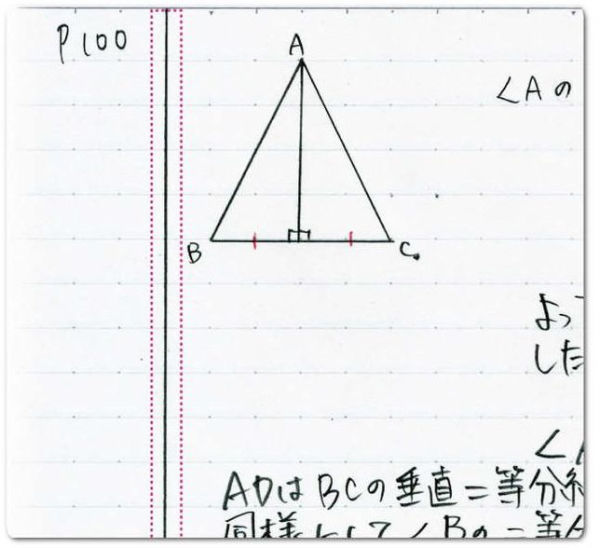 P100
A
∠Aの
B
C
よっ
した
∠A
ADはBCの垂直二等分線
同様にして∠Bの二等分